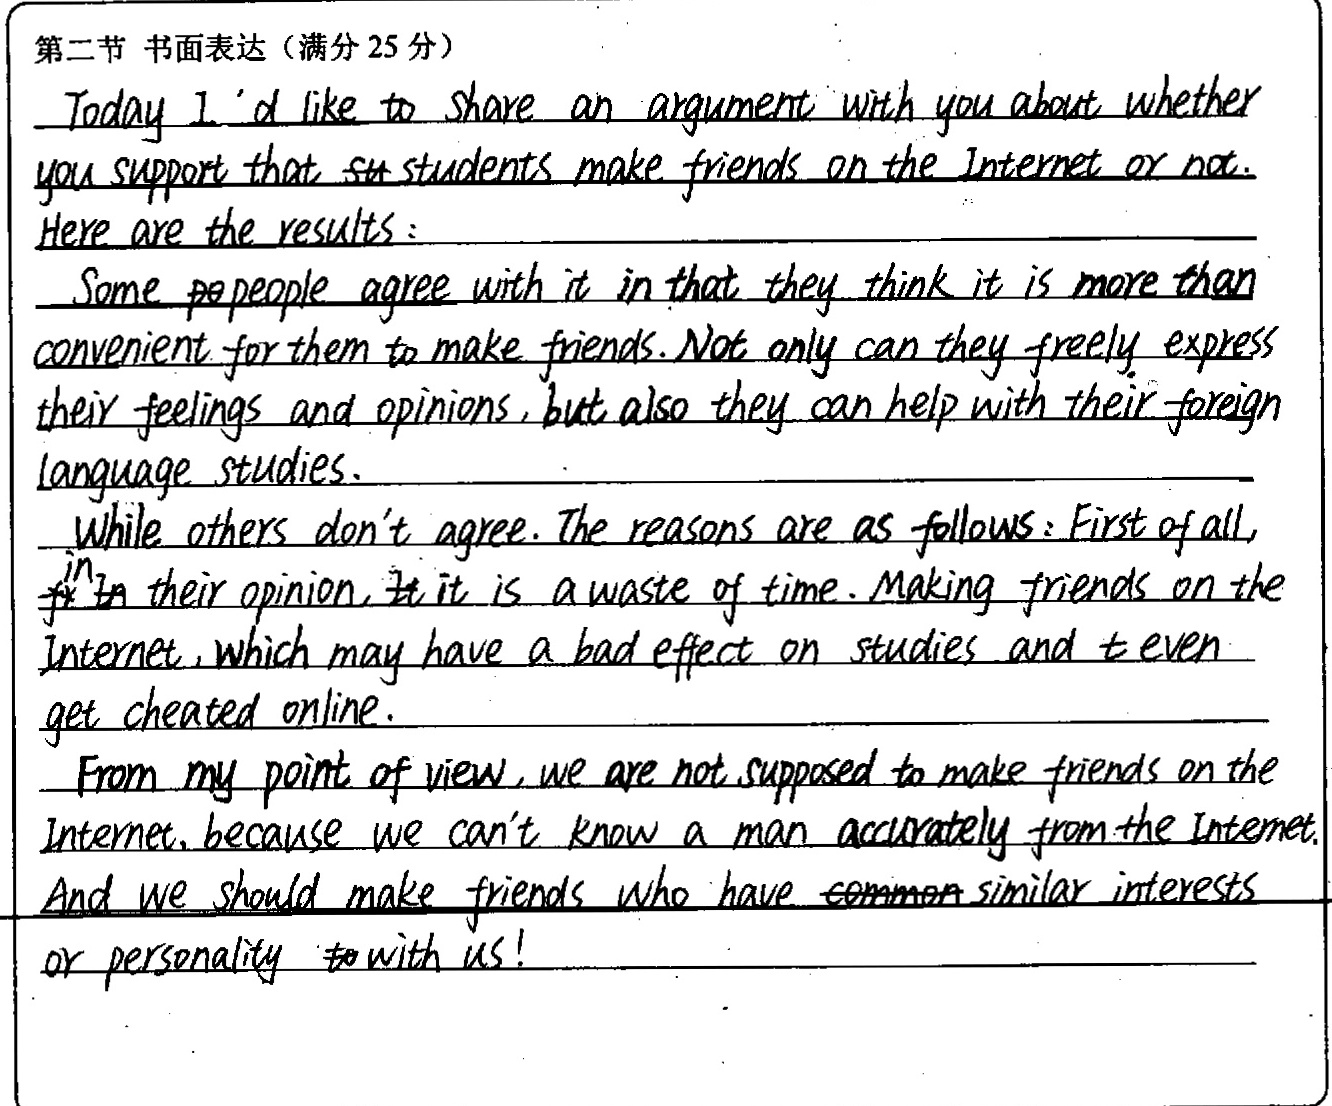 第二节 书面表达（满分 25 分）
Today I'd like to share an argument with you about whether
you support that su students make friends on the Internet or not.
Here are the results:
Some pe people agree with it in that they think it is more than
convenient for them to make friends. Not only can they freely express
their feelings and opinions, but also they can help with their foreign
language studies.
While others don't agree. The reasons are as follows: First of all,
in their opinion, It it is a waste of time. Making friends on the
Internet, which may have a bad effect on studies and t even
get cheated online.
From my point of view, we are not supposed to make friends on the
Internet, because we can't know a man accurately from the Internet.
And we should make friends who have common similar interests
or personality to with us!